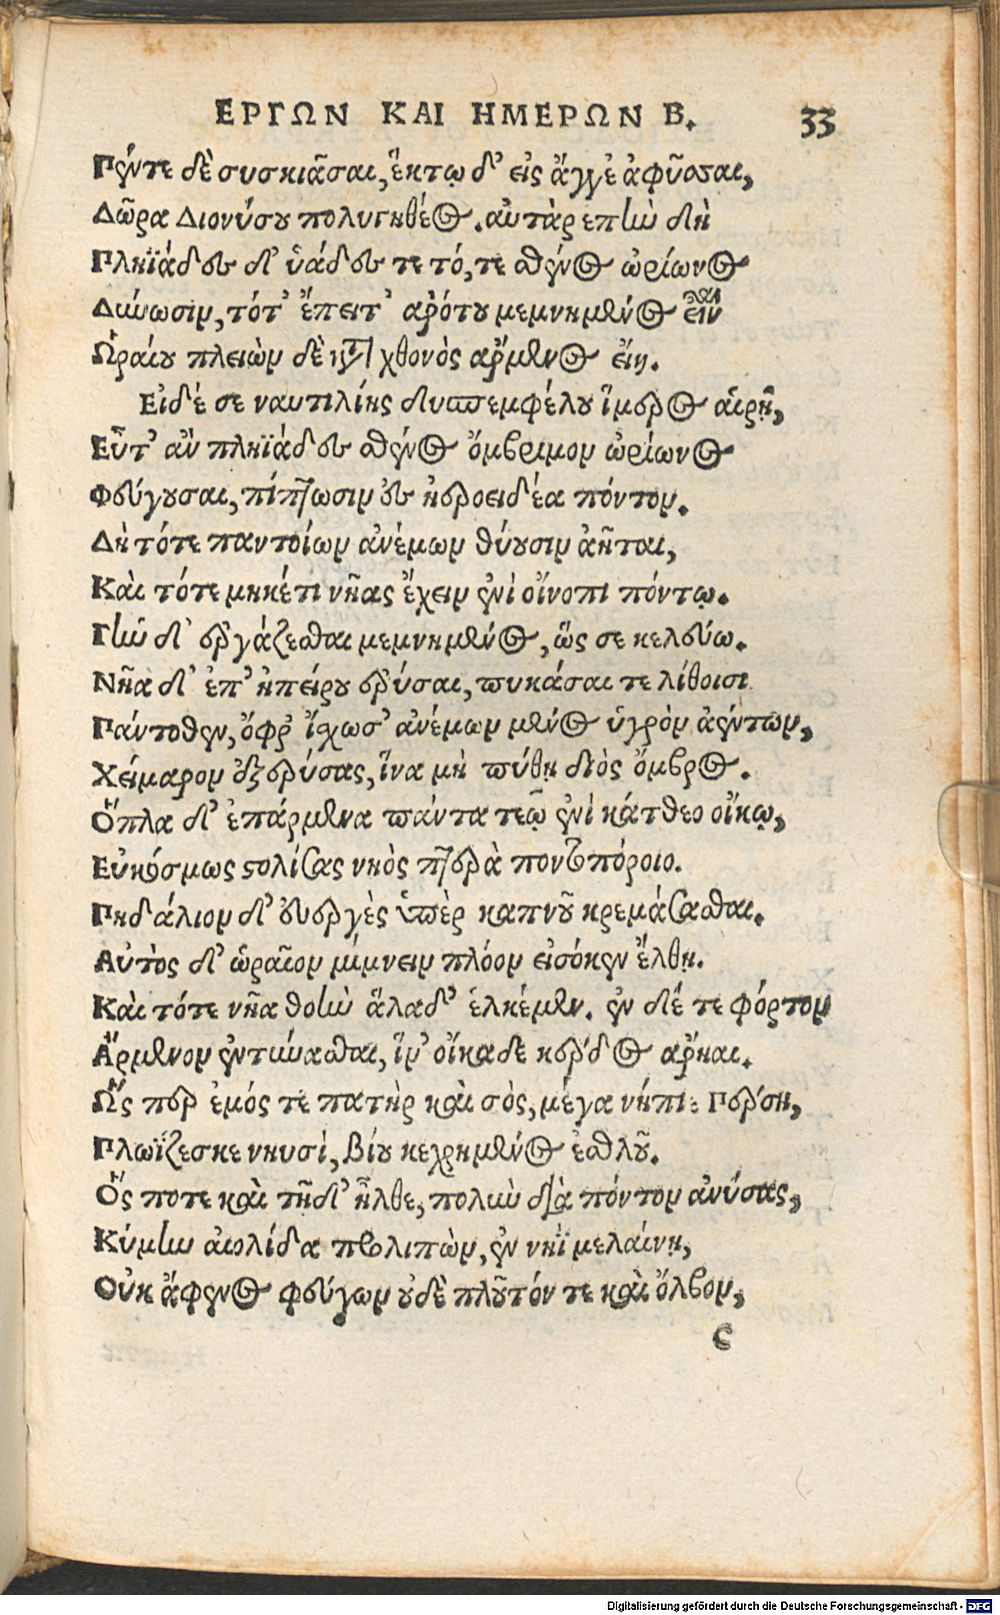 ΕΡΓΩΝ ΚΑΙ ΗΜΕΡΩΝ Β. 33
Πέντε δὲ συσκιᾶσαι, ἕκτῳ δ' εἰς ἄγγε' ἀφύσσαι,
Δῶρα Διονύσου πολυγηθέος. αὐτὰρ ἐπὴν δὴ
Πληϊάδες δ' ὑάδες τε τό, τε σθένος ὠρίωνος
Δύνωσιν, τότ' ἔπειτ' ἀρότου μεμνημένος εἶναι
Ὡραίου πλειὼν δὲ κατὰ χθονὸς ἄρμενος εἴη.
Εἰδέ σε ναυτιλίης δυσπεμφέλου ἵμερος αἱρῇ,
Εὖτ' ἂν πληϊάδες σθένος ὄμβριμον ὠρίωνος
Φεύγουσαι, πίπτωσιν ἐς ἠεροειδέα πόντον.
Δὴ τότε παντοίων ἀνέμων θύουσιν ἀῆται,
Καὶ τότε μηκέτι νῆας ἔχειν ἐνὶ οἴνοπι πόντῳ.
Γῆν δ' ἐργάζεσθαι μεμνημένος, ὥς σε κελεύω.
Νῆα δ' ἐπ' ἠπείρου ἐρύσαι, πυκάσαι τε λίθοισι
Πάντοθεν, ὄφρ' ἴσχωσ' ἀνέμων μένος ὑγρὸν ἀέντων,
Χείμαρον ἐξερύσας, ἵνα μὴ πύθῃ διὸς ὄμβρος.
Ὅπλα δ' ἐπάρμενα πάντα τεῷ ἐνὶ κάτθεο οἴκῳ,
Εὐκόσμως στολίσας νηὸς πτερὰ ποντοπόροιο.
Πηδάλιον δ' εὐεργὲς ὑπὲρ καπνοῦ κρεμάσασθαι.
Αὐτὸς δ' ὡραῖον μίμνειν πλόον εἰσόκεν ἔλθῃ.
Καὶ τότε νῆα θοὴν ἅλαδ' ἑλκέμεν. ἐν δέ τε φόρτον
Ἄρμενον ἐντύνασθαι, ἵν' οἴκαδε κέρδος ἄρηαι.
Ὥς περ ἐμός τε πατὴρ καὶ σὸς, μέγα νήπιε Πέρση,
Πλωϊζεσκε νηυσί, βίου κεχρημένος ἐσθλοῦ.
Ὅς ποτε καὶ τῇδ' ἦλθε, πολὺν διὰ πόντον ἀνύσας,
Κύμην αἰολίδα προλιπὼν, ἐν νηῒ μελαίνῃ,
Οὐκ ἄφενος φεύγων οὐδὲ πλοῦτόν τε καὶ ὄλβον,
c
Digitalisierung gefördert durch die Deutsche Forschungsgemeinschaft - DFG